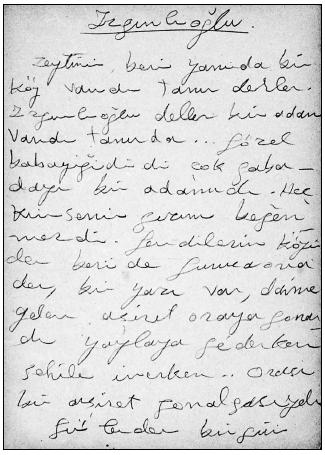 Izgınlıoğlu.
zeytinin beri yanında bir
köy vardı tanır derler.
Izgınlıoğlu deller bir adam
vardı tanırda... güzel
babayiğididi çok gaba-
dayı bir adamıdı. Heç
kimsenin gızını beğen
mezdi. Şendilerin köyün
den beri de
der, bir yazı var, daime
gelen aşiret oraya gonar
dı yaylaya giderken
sehile inerken.. orası
bir aşiret gonalgasıydı
günlerden birgün